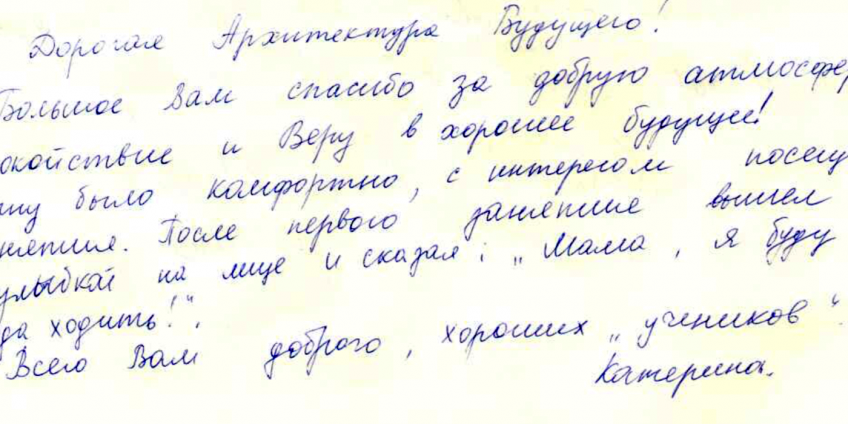 Дорогая Архитектура Будущего!
Большое Вам спасибо за добрую атмосфер
окойствие и Веру в хорошее будущее!
му было комфортно, с интересом посещ
нятие. После первого занятие вышел
улыбкой на лице и сказал: „Мама, я буду
да ходить!“.
Всего Вам доброго, хороших „учеников“.
Катерина.